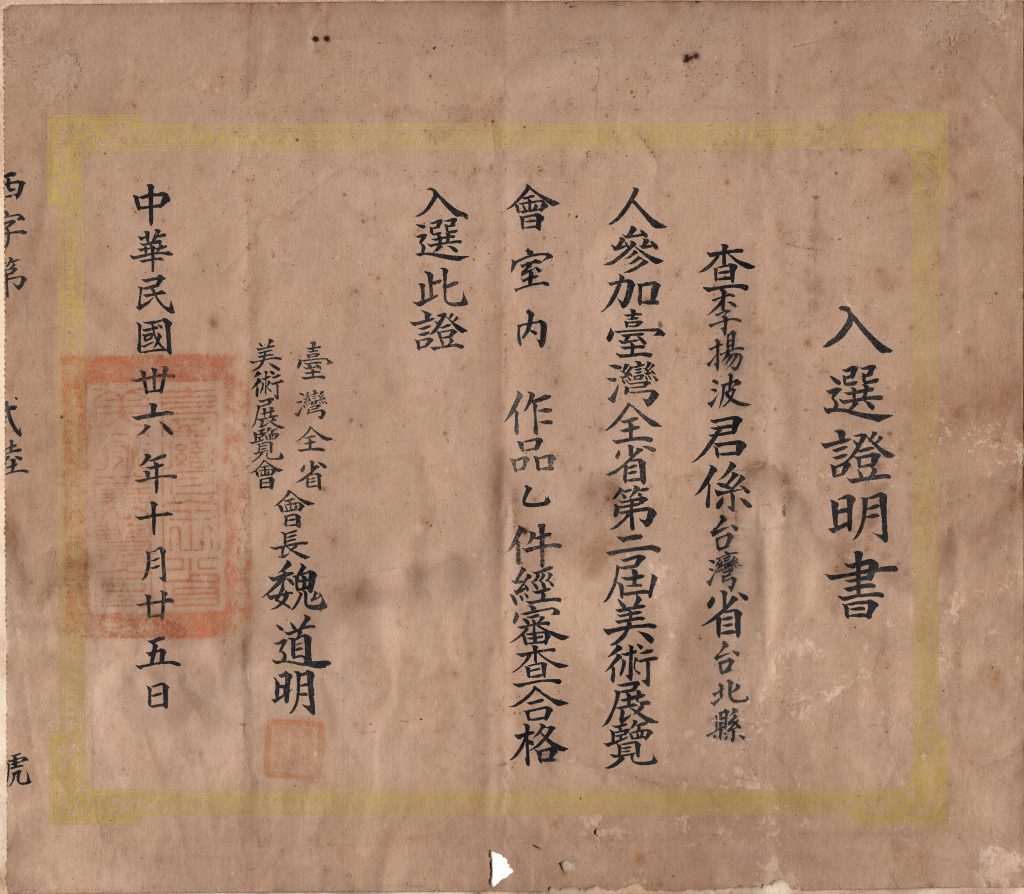 入選證明書
查李揚波君係台灣省台北縣
人參加臺灣全省第二屆美術展覽
會室內 作品乙件經審查合格
入選此證
臺灣全省
美術展覽會
會長魏道明
中華民國卅六年十月廿五日
西字第 貳陸 號